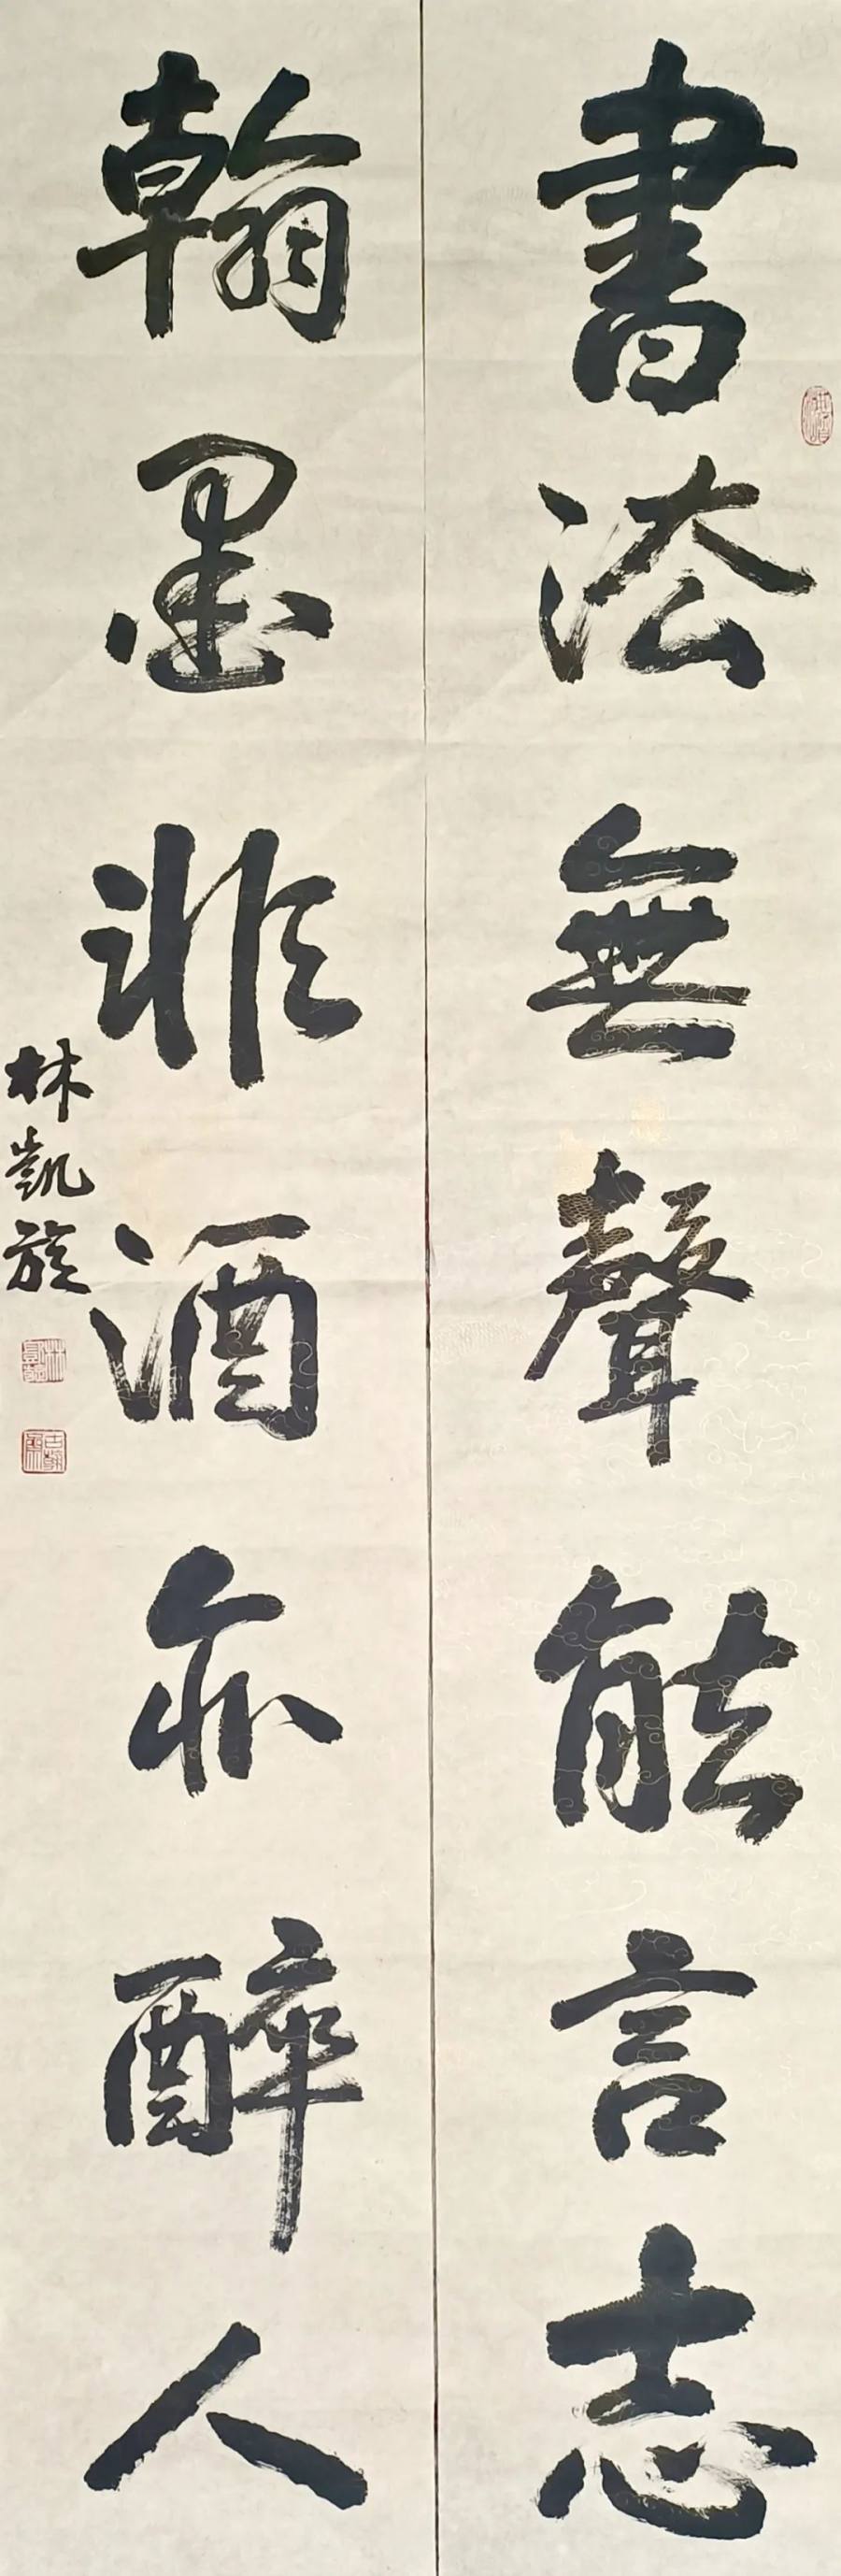 書法無聲能言志
翰墨非酒亦醉人
林凱旋